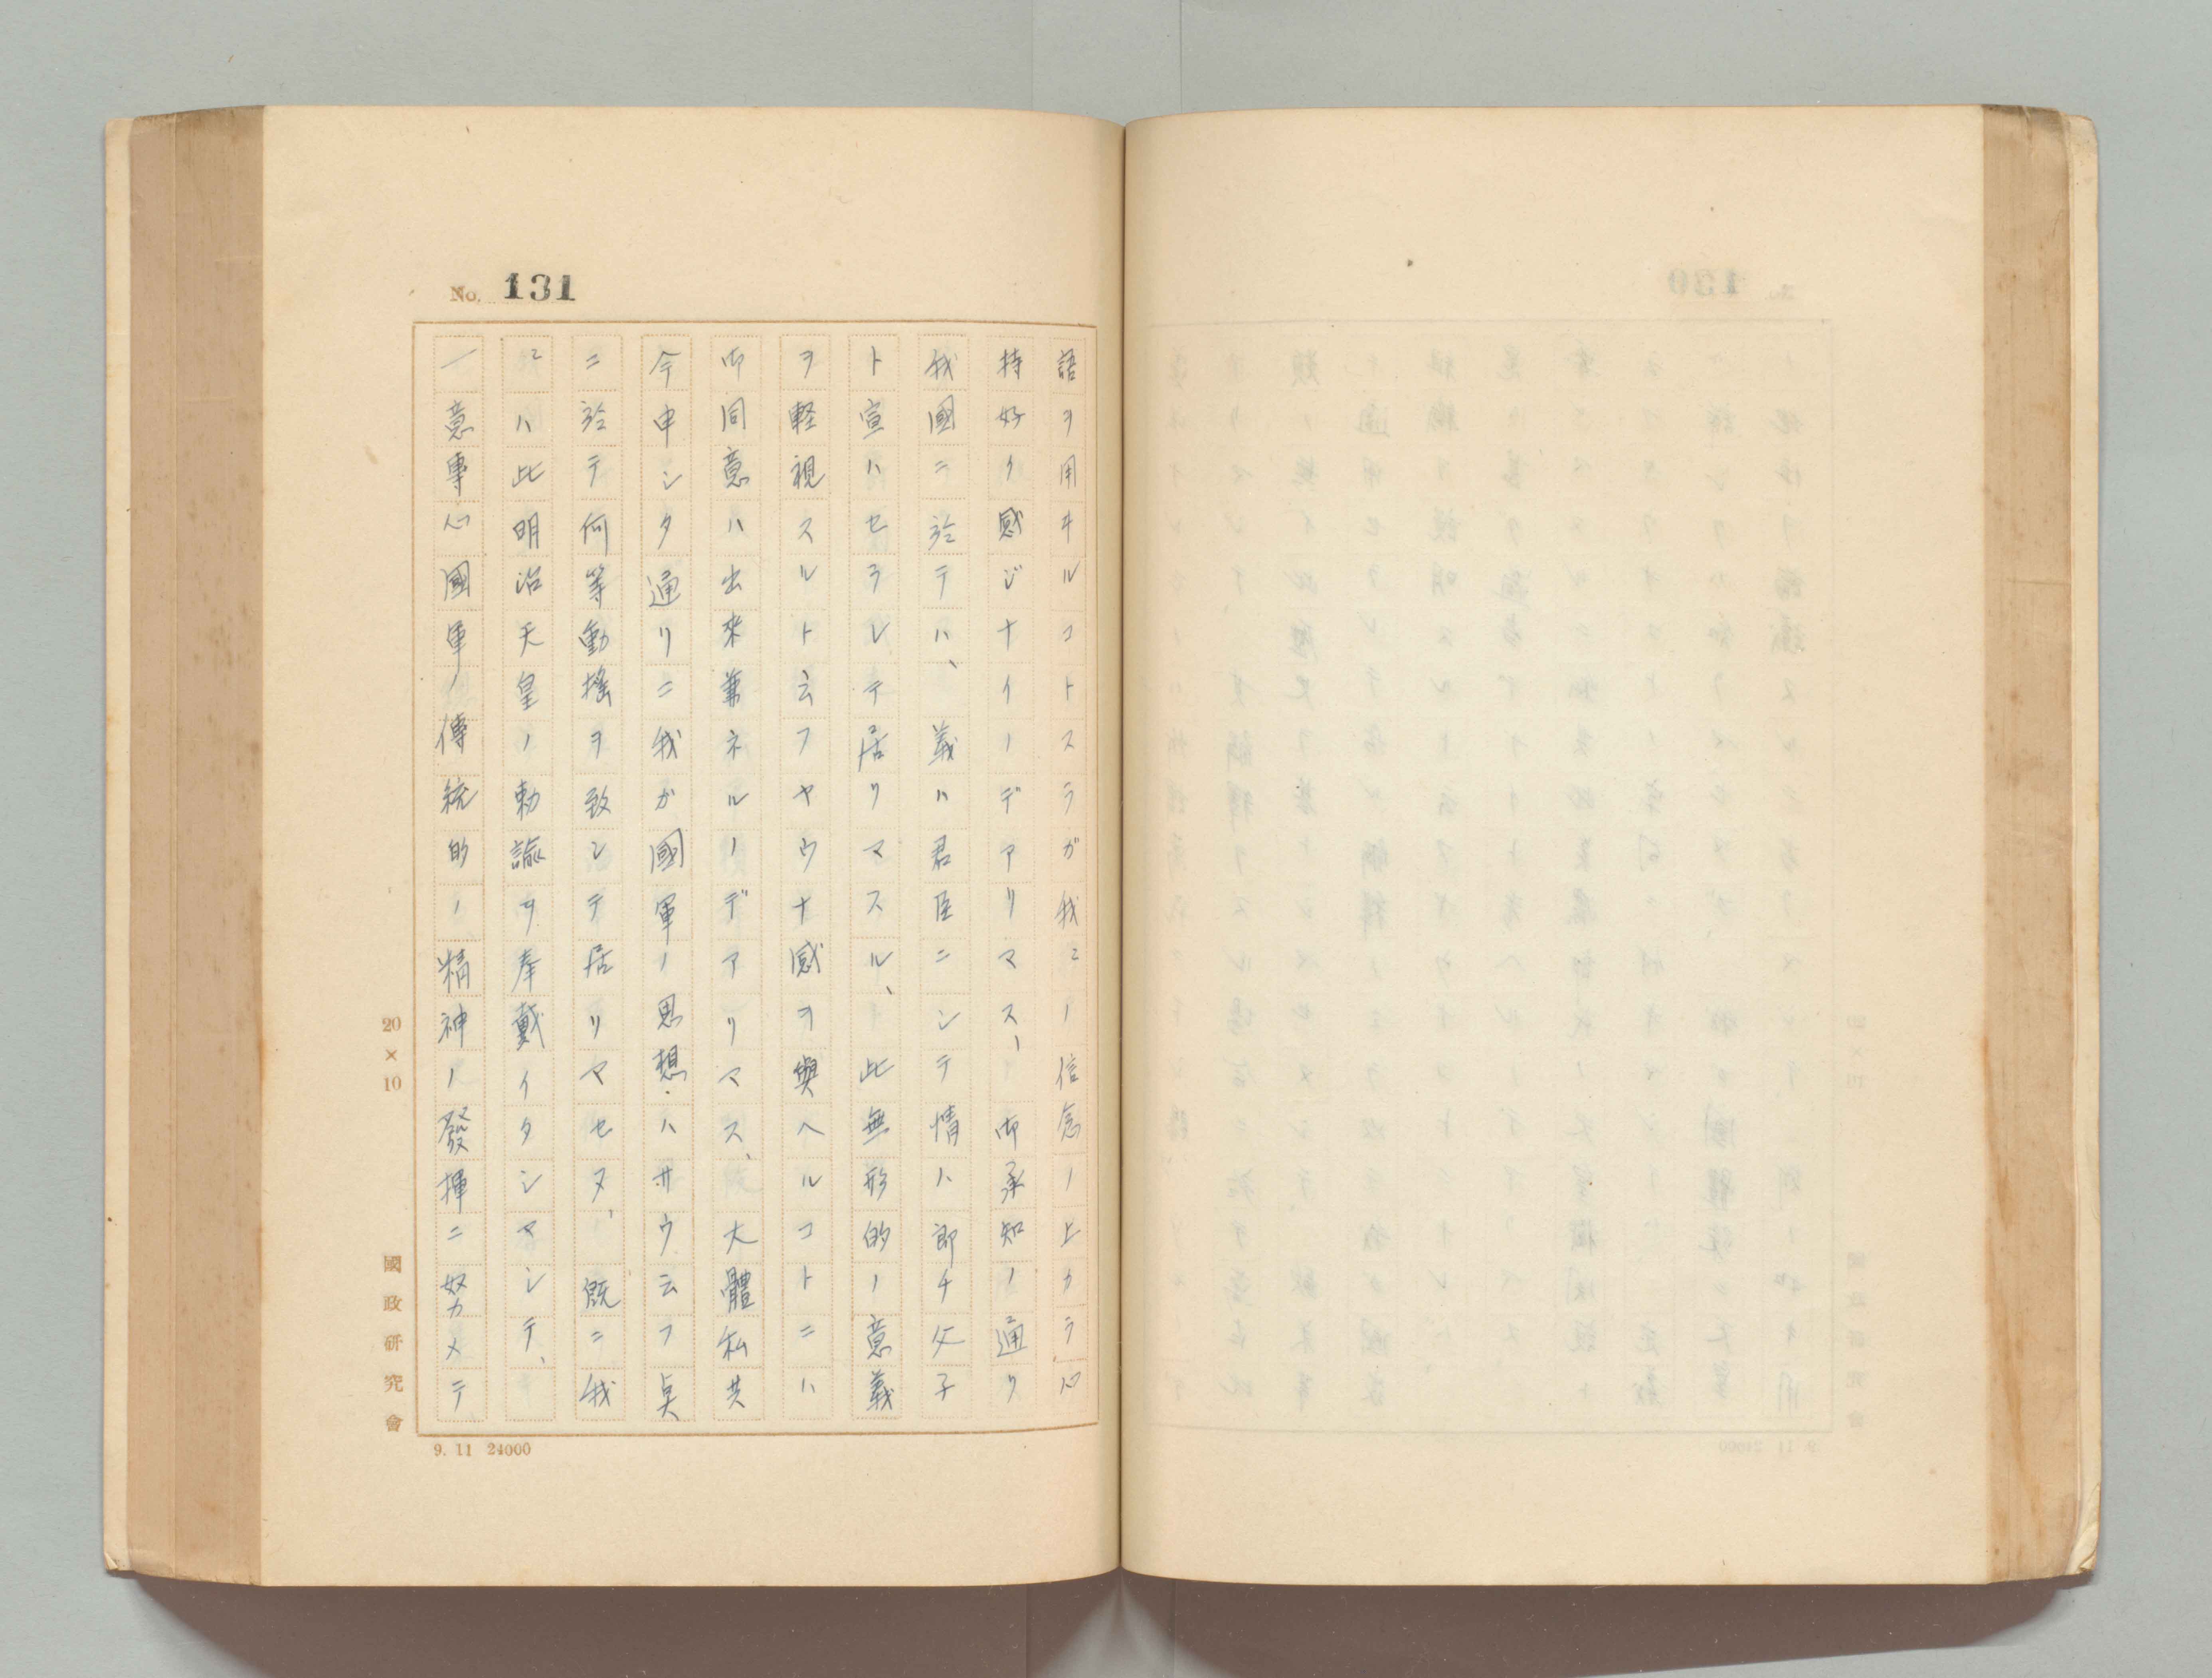 No. 131
語ヲ用ヰルコトスラガ我々ノ信念ノ上カラ心
持好ク感ジナイノデアリマス、御承知ノ通リ
我國ニ於テハ、義ハ君臣ニシテ情ハ即チ父子
ト宣ハセラレテ居リマスル、此無形的ノ意義
ヲ軽視スルト云フヤウナ感ヲ與ヘルコトニハ
御同意ハ出來兼ネルノデアリマス、大體私共
今申シタ通リニ我が國軍ノ思想ハサウ云フ奌
ニ於テ何等動揺ヲ致シテ居リマセヌ、既ニ我
々ハ此明治天皇ノ勅諭ヲ奉戴イタシマシテ、
一意專心國軍ノ傳統的ノ精神ノ發揮ニ努メテ
20×10
國政研究會
9. 11 24000